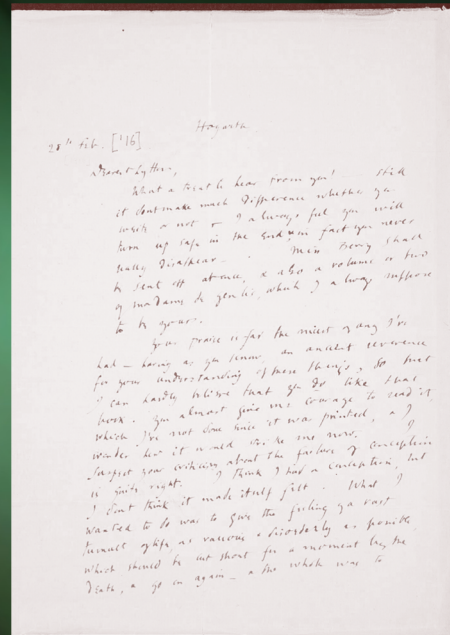 Hogarth
28th Feb. ['16]
Dearest Lytton,
What a treat to hear from you! Still
it dont make much difference whether you
write or not & I always feel you will
turn up safe in the end, in fact you never
really disappear. Miss Berry shall
be sent off at once, & also a volume or two
of Madame de Genlis, which I always suppose
to be yours.
Your praise is far the nicest of any I've
had — having as you know, an ancient reverence
for your understanding of these things, so that
I can hardly believe that you do like that
book. You almost give me courage to read it
which I've not done since it was printed, & I
wonder how it would strike me now. I
suspect your criticism about the failure of conception
is quite right. I think I had a conception, but
I dont think it made itself felt. What I
wanted to do was to give the feeling of a vast
tumult of life, as various & disorderly as possible
which should be cut short for a moment by the
death, & go on again — & the whole was to